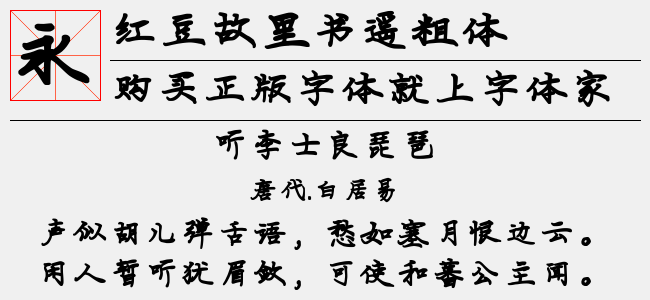 永
红豆故里书遥粗体
购买正版字体就上字体家
听李士良琵琶
唐代.白居易
声似胡儿弹舌语，愁如塞月恨边云。
闲人暂听犹眉敛，可使和蕃公主闻。